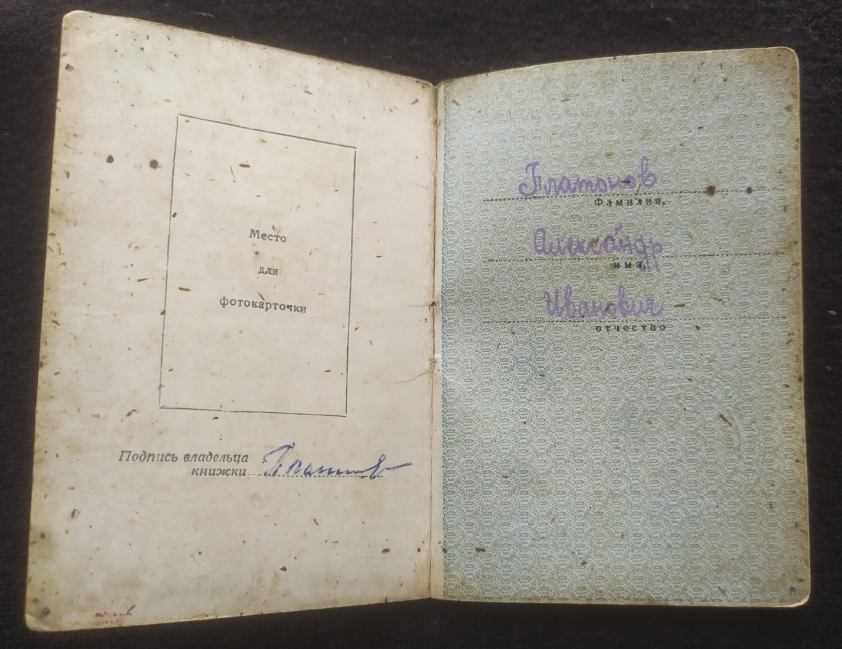 Место
для
фотокарточки
Подпись владельца
книжки Платонов
Платонов
Фамилия,
Александр
имя,
Иванович
отчество